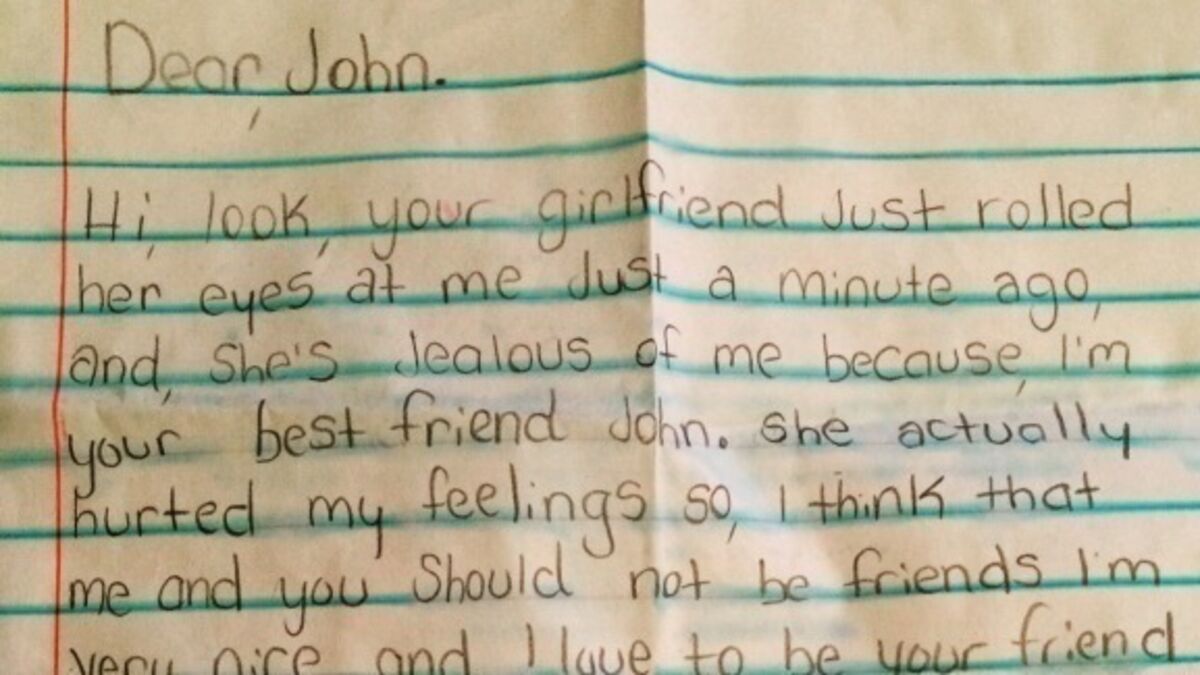 Dear, John.
Hi, look, your girlfriend Just rolled
her eyes at me Just a minute ago,
and, She's Jealous of me because, I'm
your best friend John. She actually
hurted my feelings so, I think that
me and you Should not be friends I'm
very nice and I love to be your friend